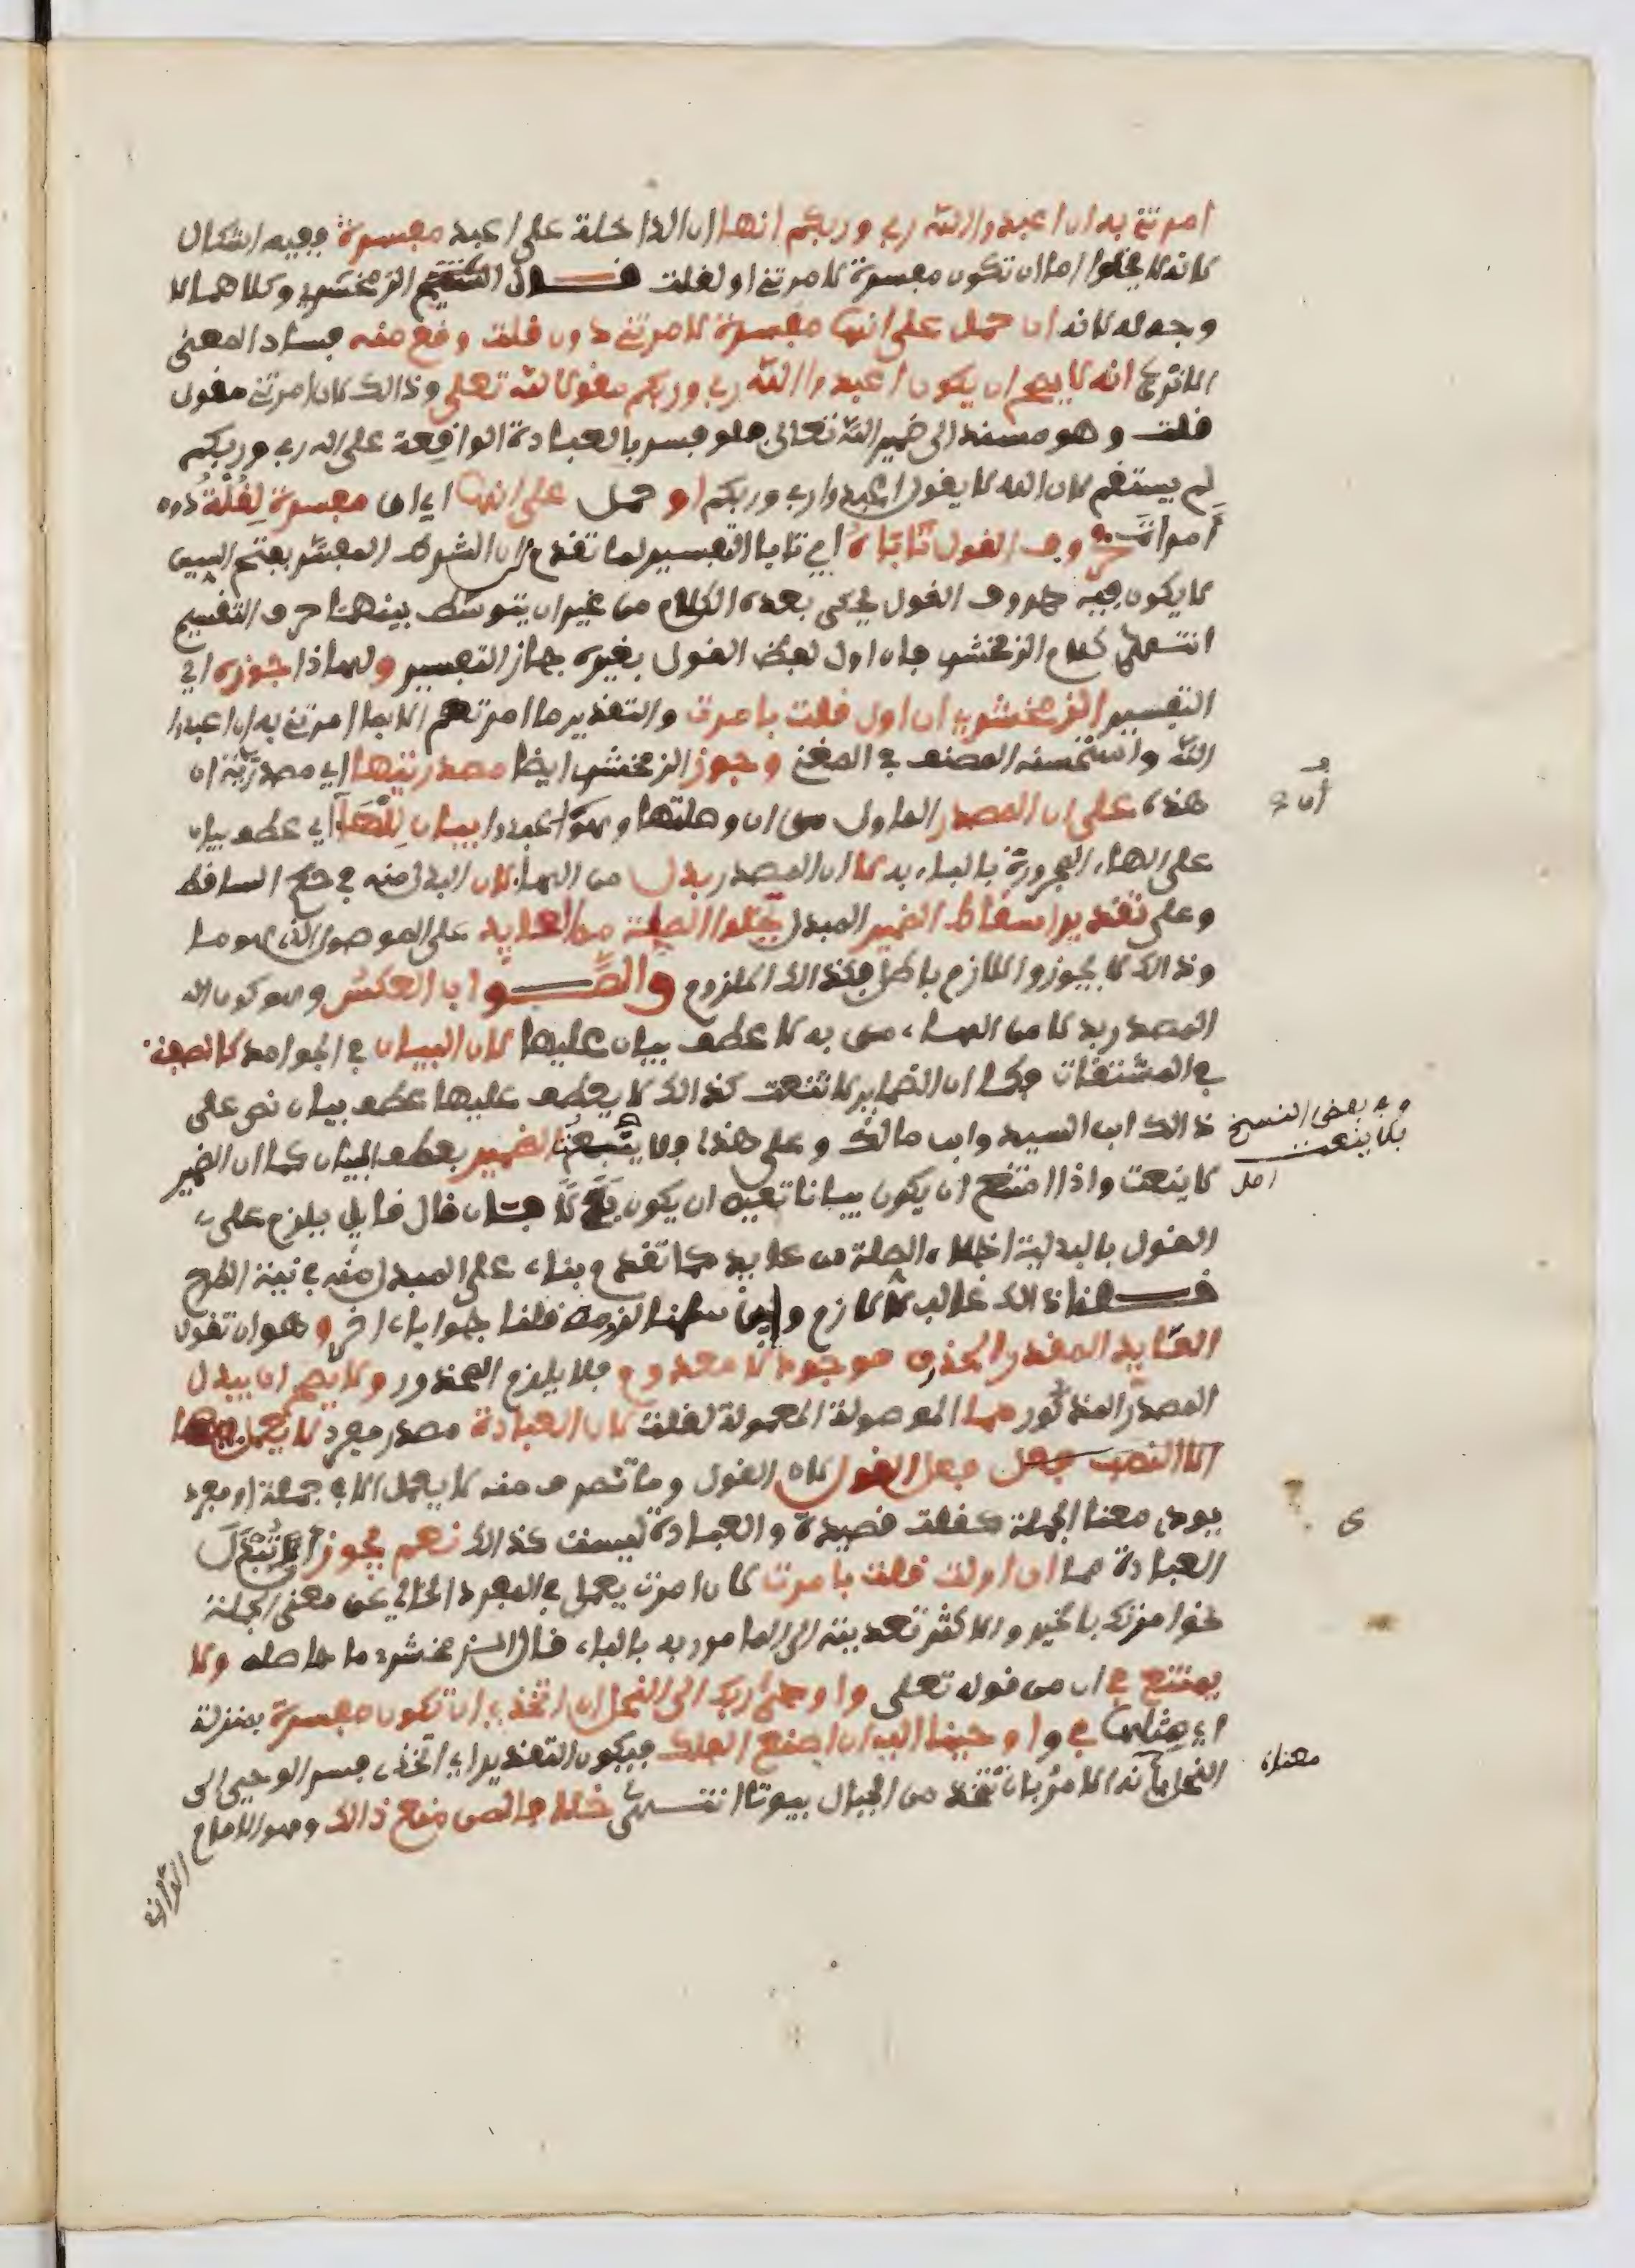 امرتني به ان اعبدوا الله ربي وربكم انها ان الداخلة على اعبد مفسرة ففيه اشكال
لانه لا يخلوا اما ان تكون مفسرة لامرتني او لقلت قال الشيخ الزمخشري وكلاهما لا
وجه له لانه ان حمل على انها مفسرة لامرتني دون قلت وقع منه فساد المعنى
الا ترى انه لا يصح ان يكون اعبدوا الله ربي وربكم مقولا لله تعلى وذالك لان امرتني مقول
قلت وهو مسند الى ضمير الله تعالى فلو فسر بالعبادة الواقعة على الله ربي وربكم
لم يستقم لان الله لا يقول اعبدوا ربي وربكم او حمل على انها اي ان مفسرة لقلت دون
امرات حروف القول تاباه اي تابا التفسير لما تقدم ان الشرط المفسر بفتح السين
لا يكون فيه حروف القول يحكى بعده الكلام من غير ان يتوسط بينهما حرف التفسير
انتهى كلام الزمخشري فان اول لفظ القول بغيره جاز التفسير ولهاذا جوزه اي
التفسير الزمخشري ان اول قلت بامرت والتقدير ما امرتهم الا بما امرتني به ان اعبدوا
الله واستحسنه المصنف في المغني وجوز الزمخشري ايضا مصدريتها اي مصدرية ان
هذه على ان المصدر الماول من ان وصلتها وهو اعبدوا بيان للها اي عطف بيان
على الهاء المجرورة بالباء به لا ان المصدر بدل من الهاء لان المبدل منه في حكم الساقط
وعلى تقدير اسقاط الضمير المبدل تخلوا الصلة من العايد على الموصول الذي هو ما
وذالك لا يجوز واللازم باطل فكذالك الملزوم والصواب العكس وهو كون ان
المصدر بدلا من الهاء من به لا عطف بيان عليها لان البيان في الجوامد كالصفة
في المشتقات فكما ان الضماير لا تنعت كذالك لا يعطف عليها عطف بيان نص على
ذالك ابن السيد وابن مالك وعلى هذا فلا يتبع الضمير بعطف البيان كما ان الضمير
لا ينعت واذا امتنع ان يكون بيانا تعين ان يكون بدلا فان قال قايل يلزم على
القول بالبدلية اخلاء الصلة من عايد كما تقدم بناء على المبدل منه في نية الطرح
قلنا ذالك غالب لا لازم ولين سلمنا لزومه قلنا جوابا اخر وهو ان تقول
العايد المقدر الحذف موجود لا معدوم فلا يلزم المحذور ولا يصح ان يبدل
المصدر المذكور من ما الموصولة المعمولة لقلت لان العبادة مصدر مفرد لا يعمل فيها
الا النصب فعل القول لان القول وما تصرف منه لا يعمل الا في جملة او مفرد
يودي معنا الجملة كقلت قصيدة والعبادة ليست كذالك نعم يجوز ان تبدل
العبادة من ما ان اولت قلت بامرت لان امرت يعمل في المفرد الخالي عن معنى الجملة
نحو امرتك بالخير والاكثر تعديته الى المامور به بالباء قال الزمخشري ما حاصله ولا
يمتنع في ان من قوله تعلى واوحى ربك الى النحل ان اتخذي ان تكون مفسرة بمنزلة
اي مثلها في واوحينا اليه ان اصنع الفلك فيكون التقدير اي اتخذي فسر الوحي الى
النحل بانه الامر بان تتخذ من الجبال بيوتا انتهى خلافا لمن منع ذالك وهو الامام
الرازي
ان
وفي بعض النسخ
فلا ينعت
اصل
ى
معناه